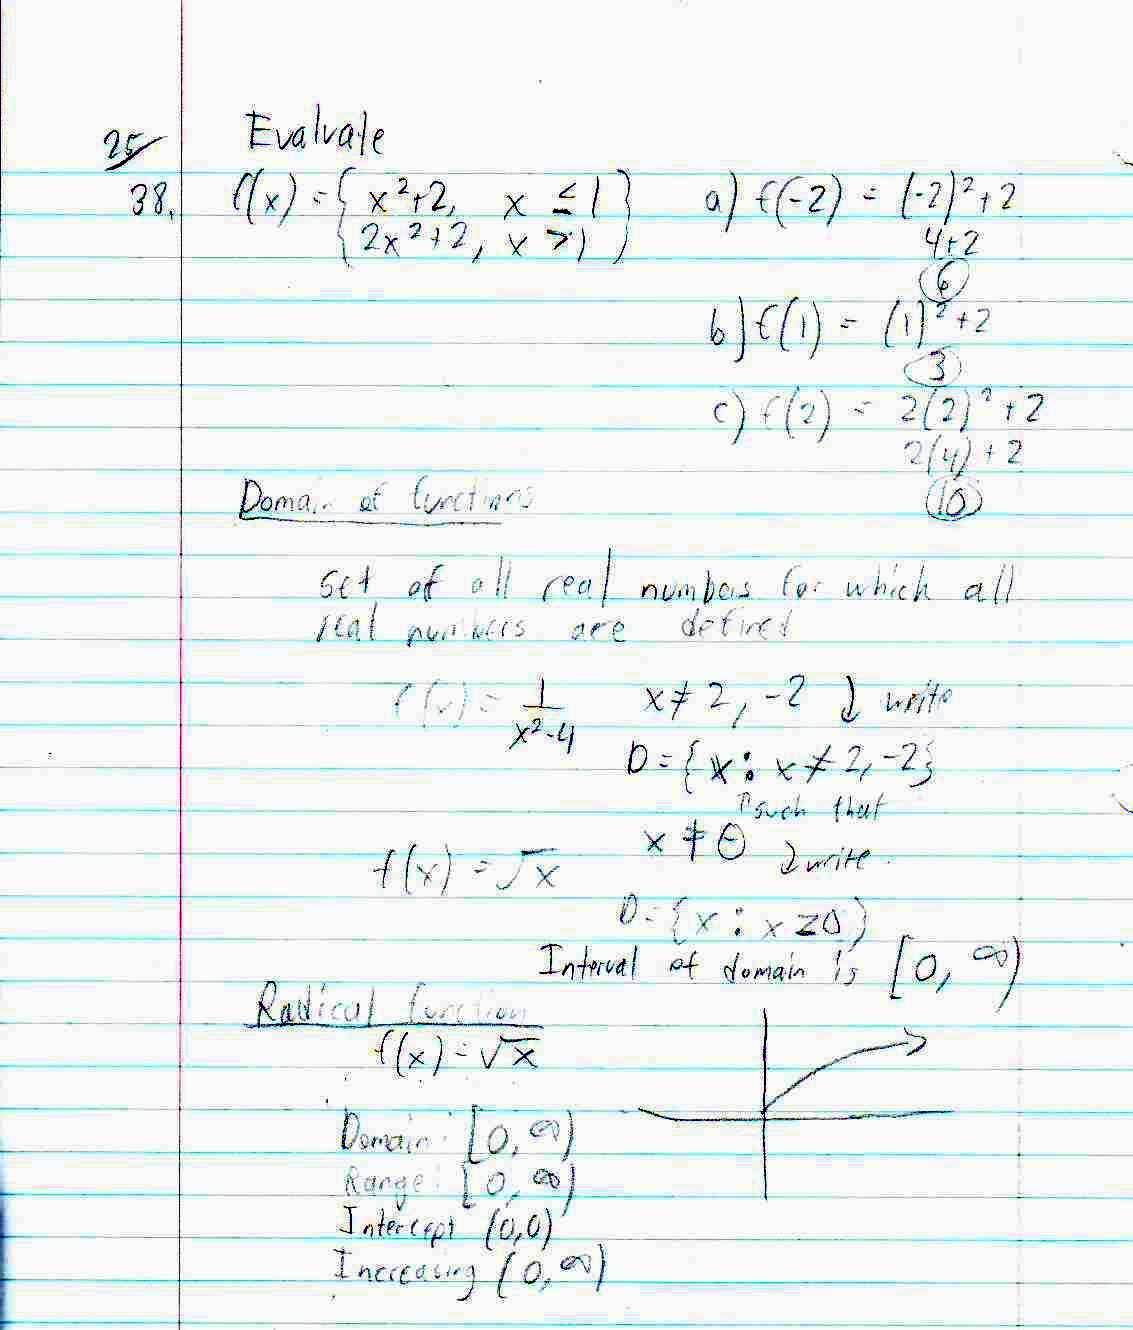 25 Evaluate
38. f(x) = { x²+2, x ≤ 1 } a) f(-2) = (-2)²+2
{ 2x²+2, x > 1 } 4+2
6
b) f(1) = (1)²+2
3
c) f(2) = 2(2)²+2
2(4)+2
Domain of functions 10
set of all real numbers for which all
real numbers are defined
f(x) = 1/(x²-4) x ≠ 2, -2 ↓ write
D = {x : x ≠ 2, -2}
↑ such that
x ≠ 0 ↓ write
f(x) = √x
D = {x : x ≥ 0}
Interval of domain is [0, ∞)
Radical function
f(x) = √x
Domain: [0, ∞)
Range: [0, ∞)
Intercept (0,0)
Increasing (0, ∞)